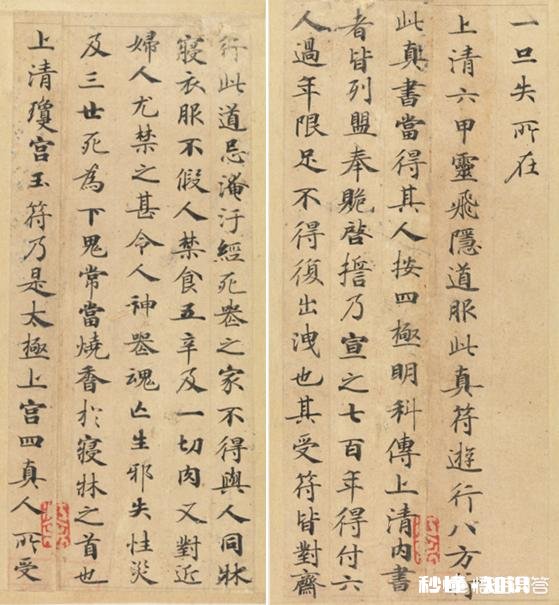 一旦失所在
上清六甲靈飛隱道服此真符遊行八方
此真書當得其人按四極明科傳上清內書
者皆列盟奉䞈啓誓乃宣之七百年得付六
人過年限足不得復出洩也其受符皆對齋
行此道忌淹汙經死喪之家不得與人同牀
寢衣服不假人禁食五辛及一切肉又對近
婦人尤禁之甚令人神喪魂亡生邪失性災
及三世死為下鬼常當燒香於寢牀之首也
上清瓊宮玉符乃是太極上宮四真人所受